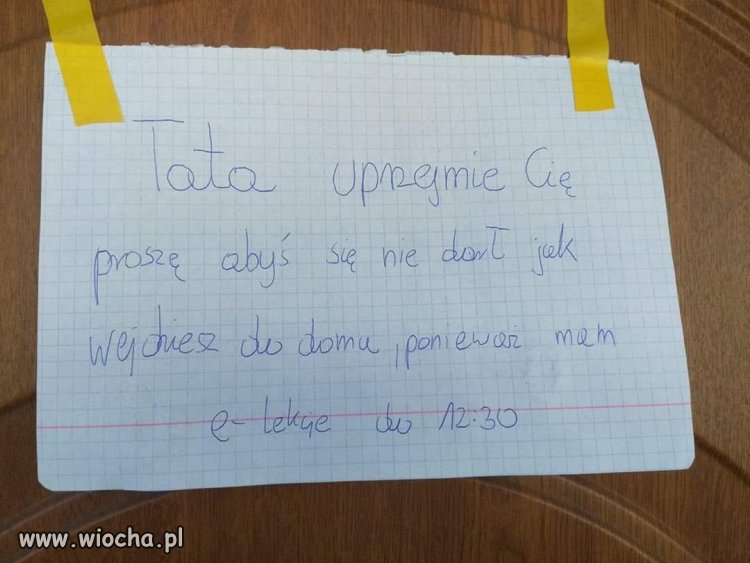 Tata uprzejmie Cię
proszę abyś się nie darł jak
wejdziesz do domu, ponieważ mam
e-lekcje do 12:30
www.wiocha.pl